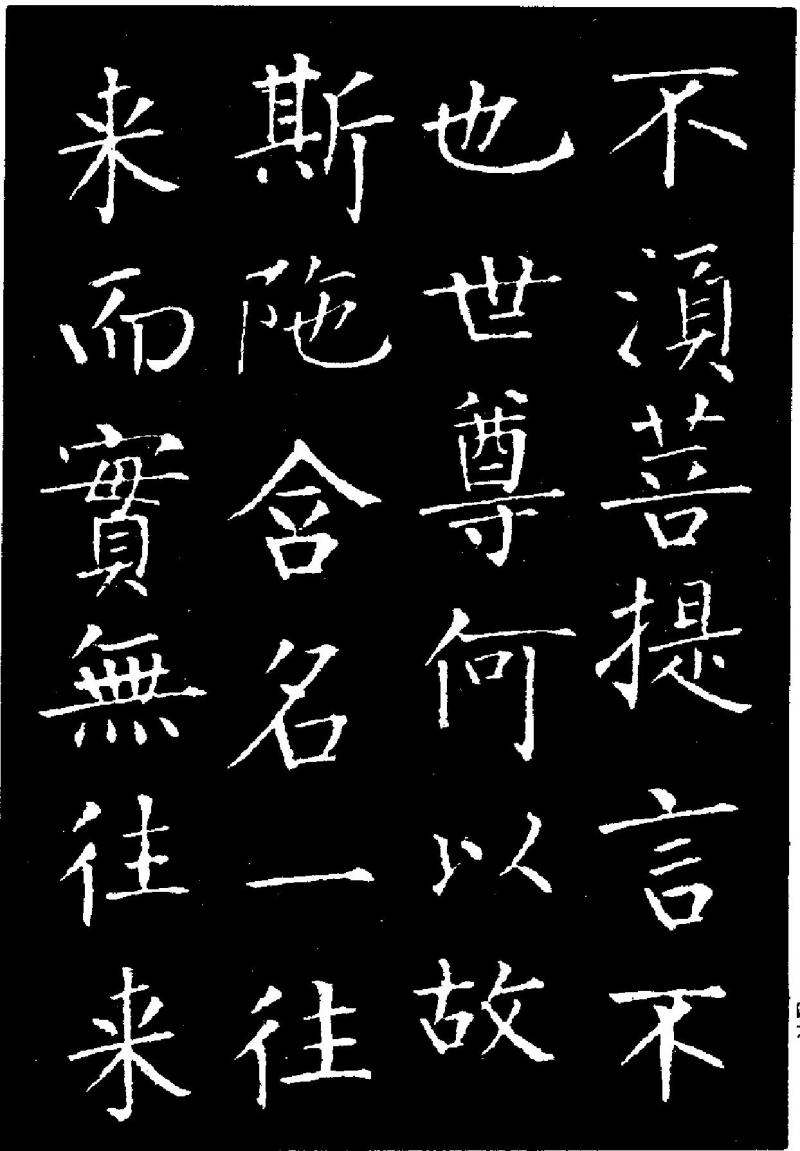 不須菩提言不
也世尊何以故
斯陁含名一往
来而實無往
来